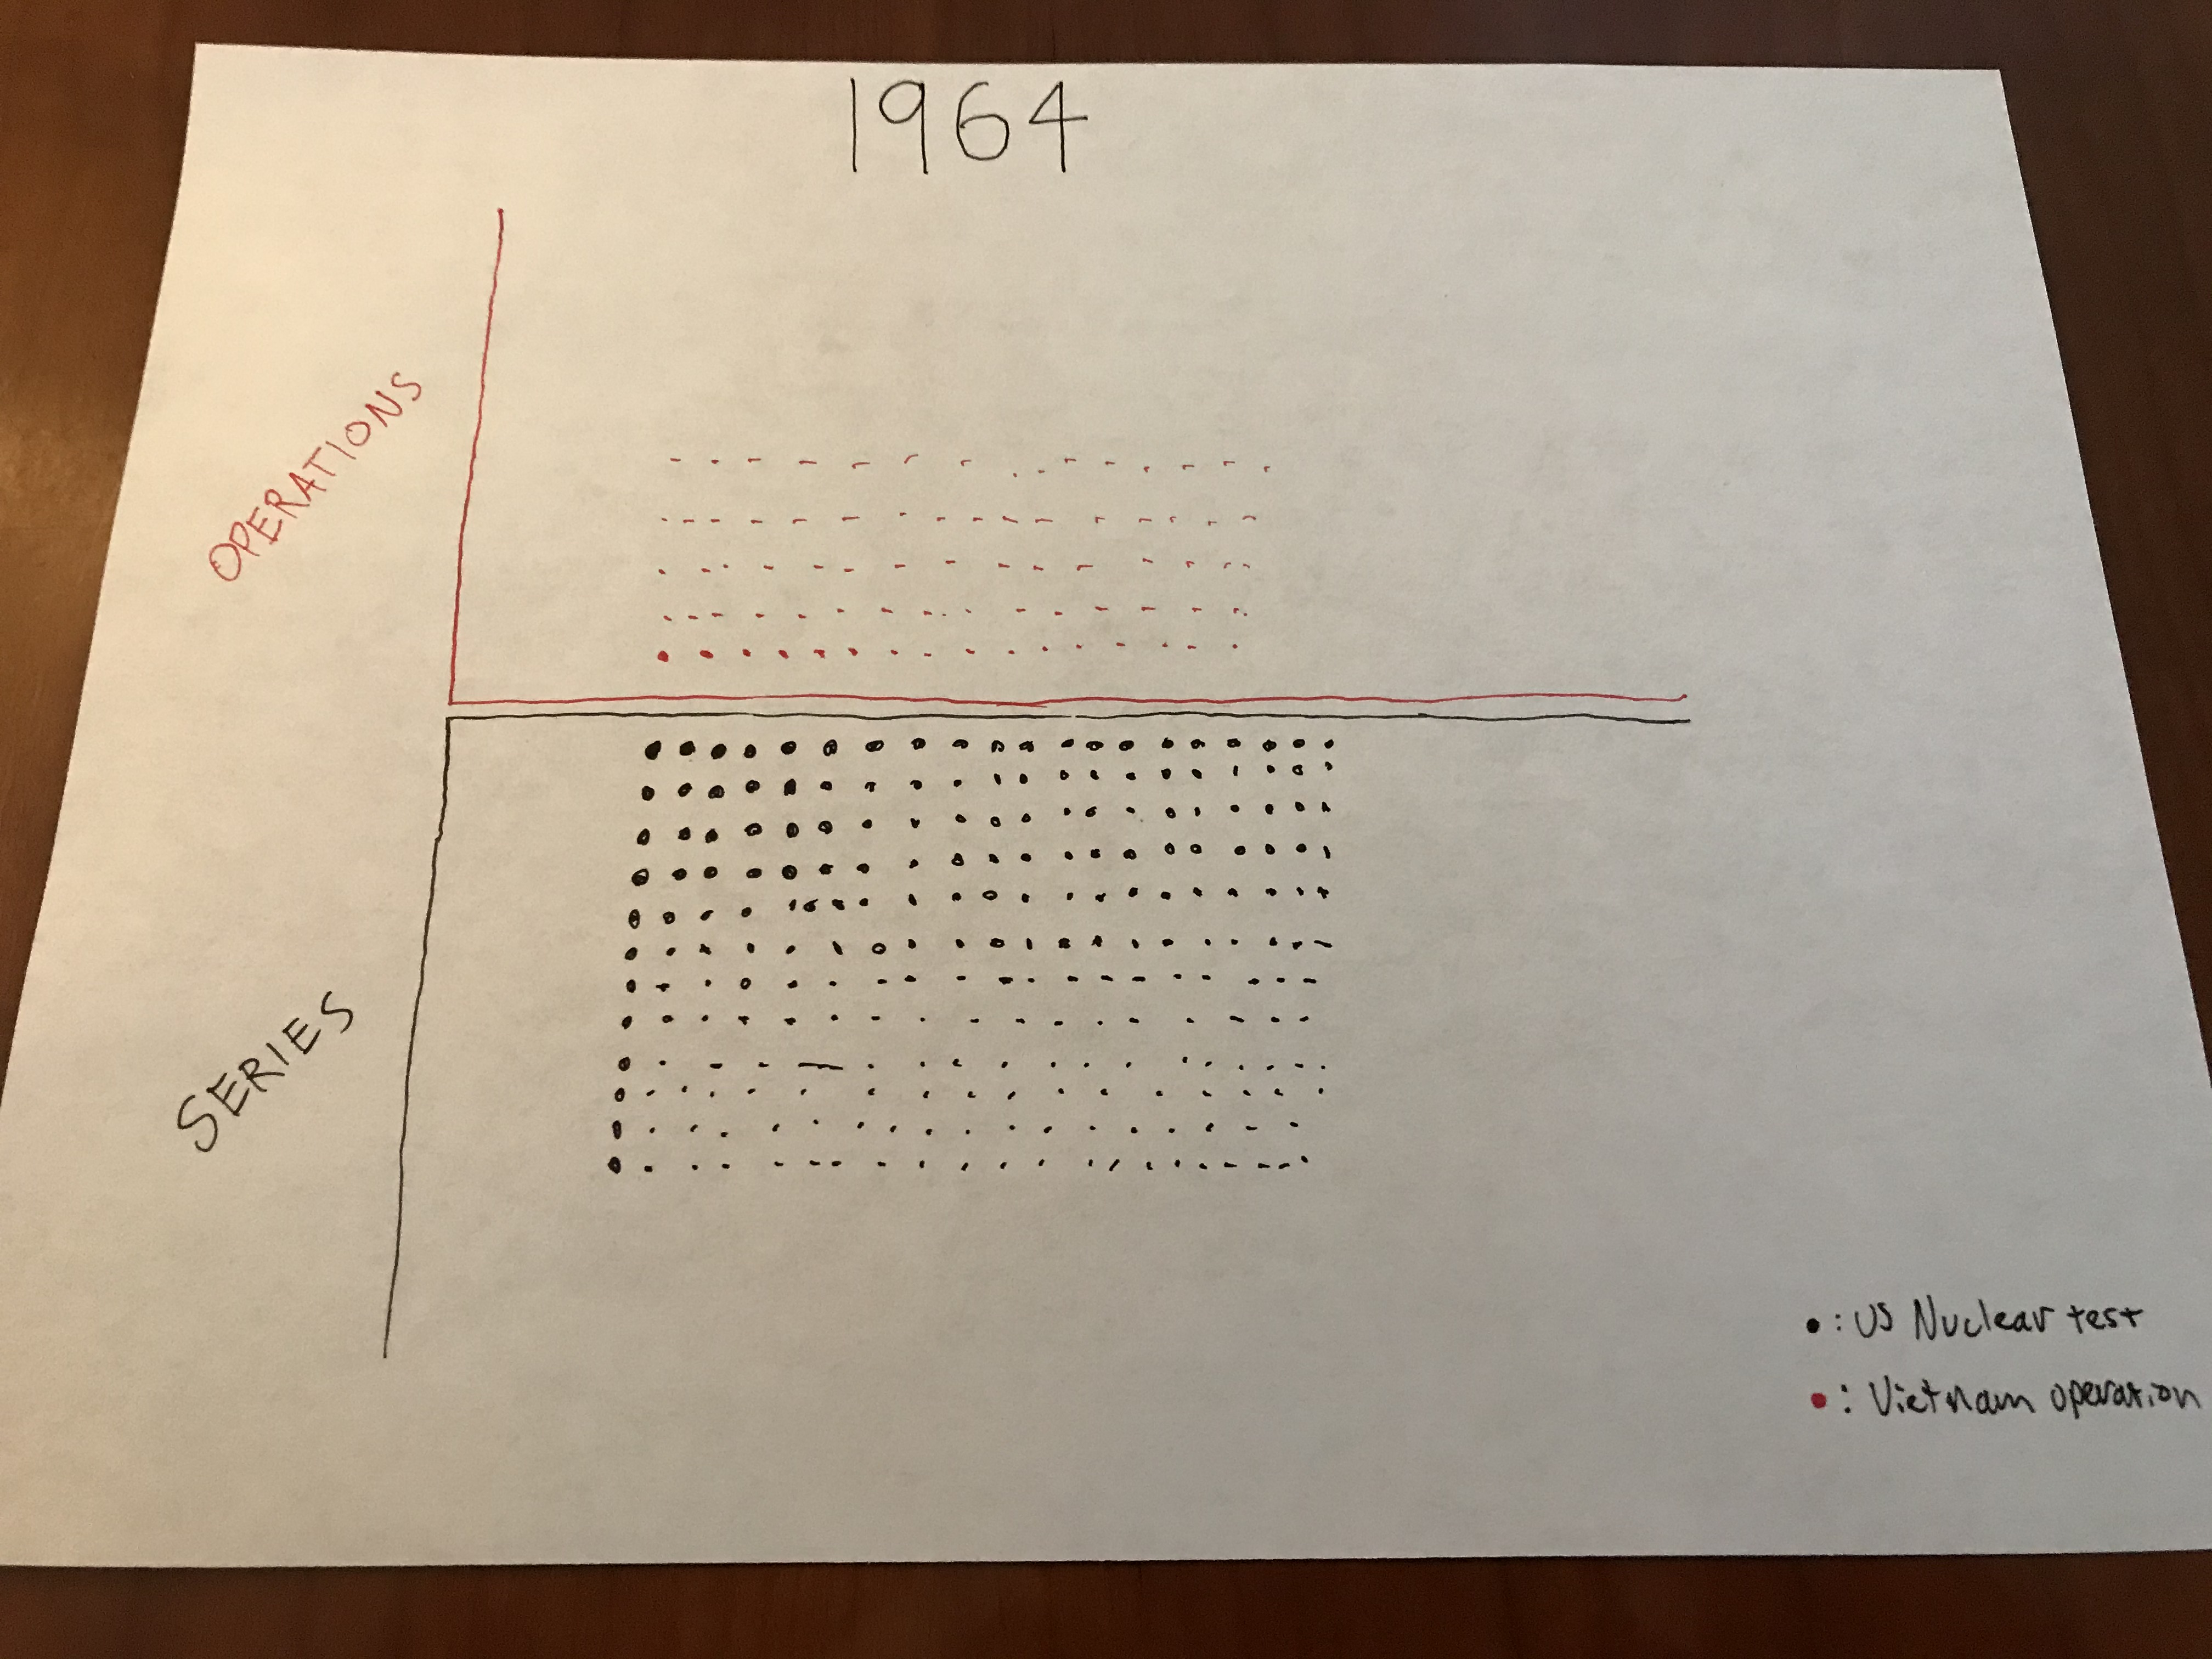 1964
OPERATIONS
SERIES
• : US Nuclear test
• : Vietnam operation